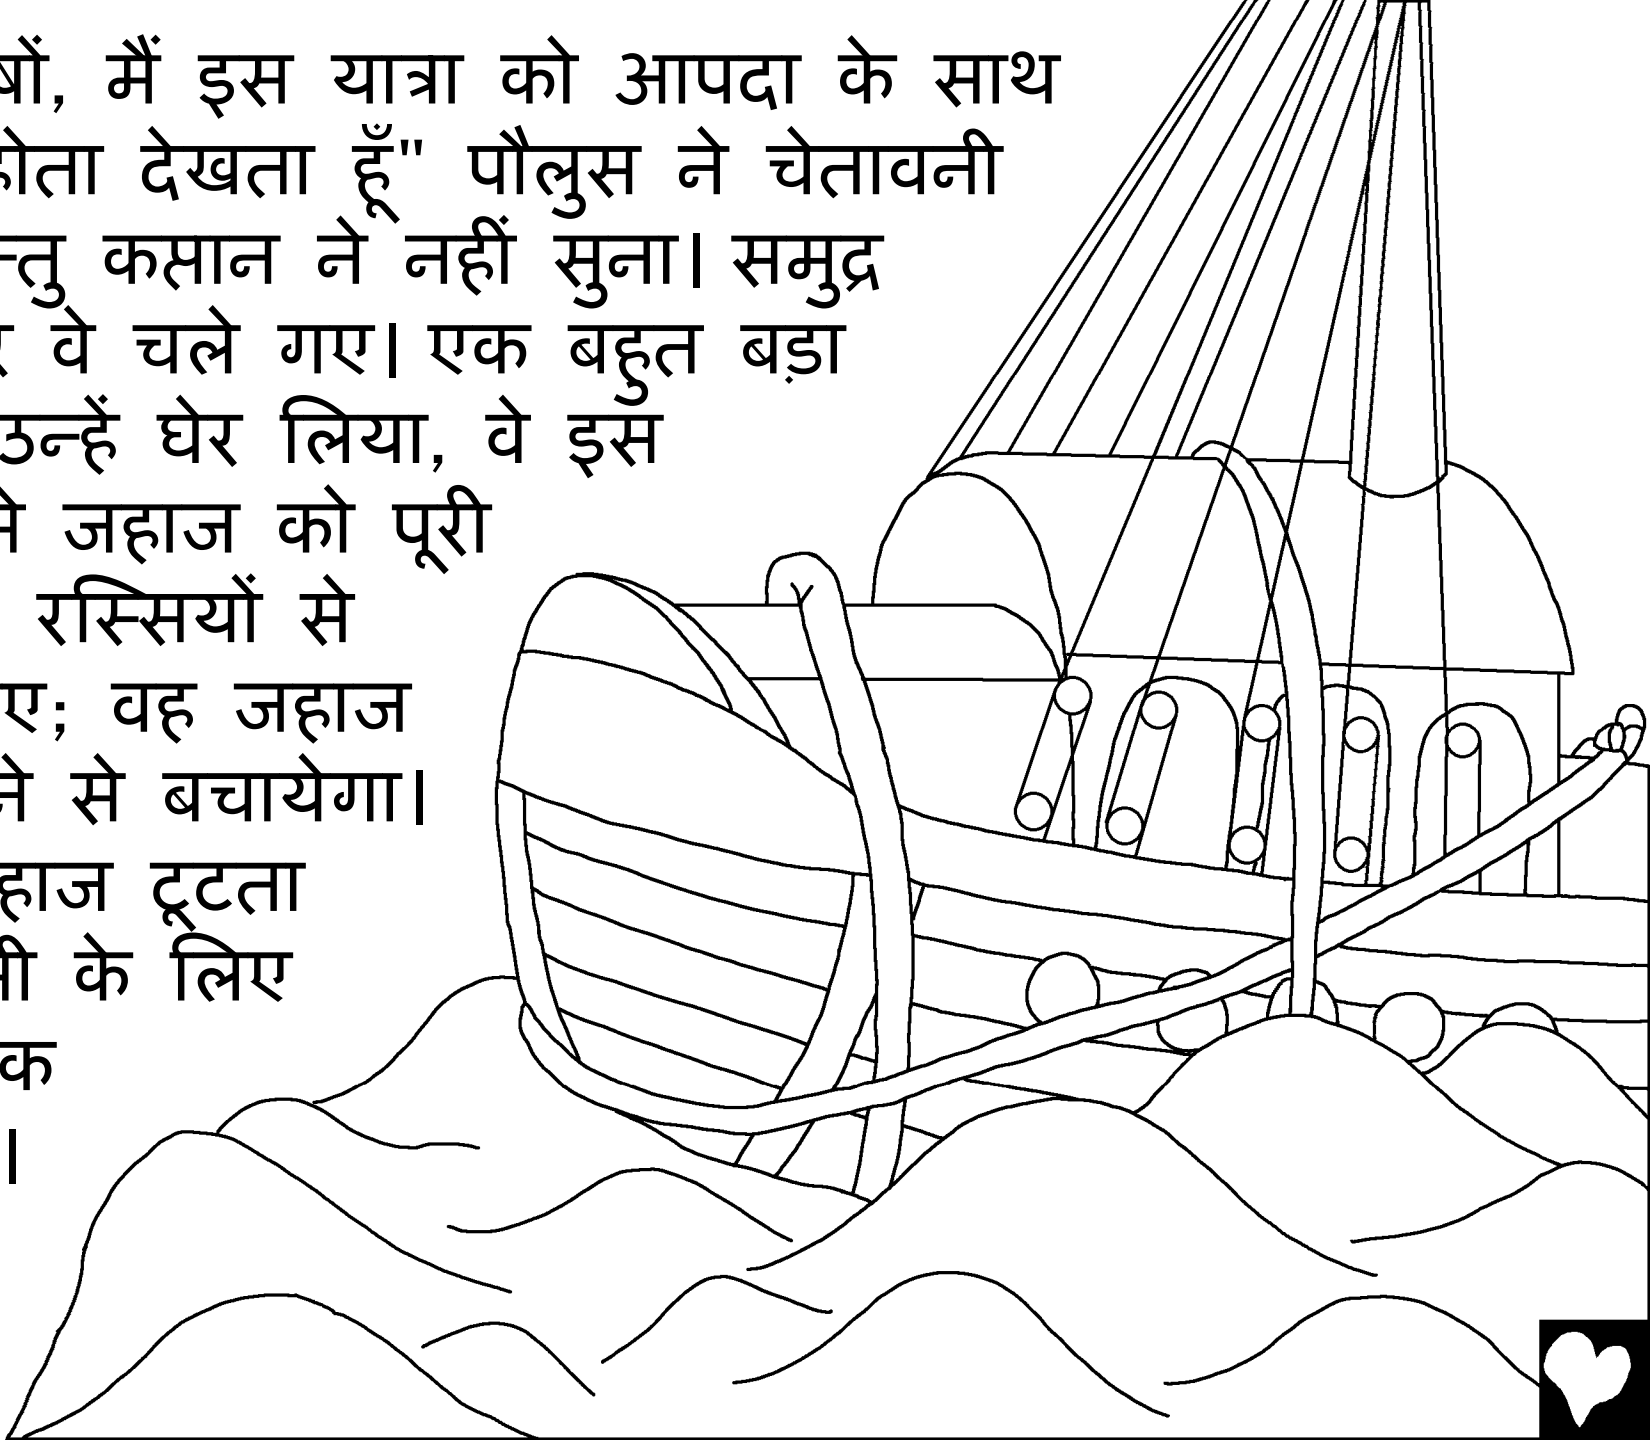 षों, मैं इस यात्रा को आपदा के साथ
होता देखता हूँ" पौलुस ने चेतावनी
न्तु कप्तान ने नहीं सुना। समुद्र
र वे चले गए। एक बहुत बड़ा
उन्हें घेर लिया, वे इस
से जहाज को पूरी
रस्सियों से
ए; वह जहाज
से से बचायेगा।
हाज टूटता
भी के लिए
क
।